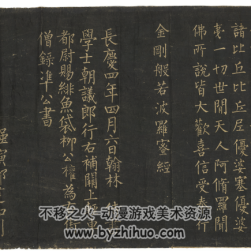 諸比丘比丘尼優婆塞優婆
夷一切世間天人阿修羅聞
佛所說皆大歡喜信受奉行
金剛般若波羅蜜經
長慶四年四月六日翰林侍書
學士朝議郎行右補闕上輕車
都尉賜緋魚袋柳公權為右街
僧錄準公書
强演邵建和刻
不移之火-动漫游戏美术资源
www.byzhihuo.com